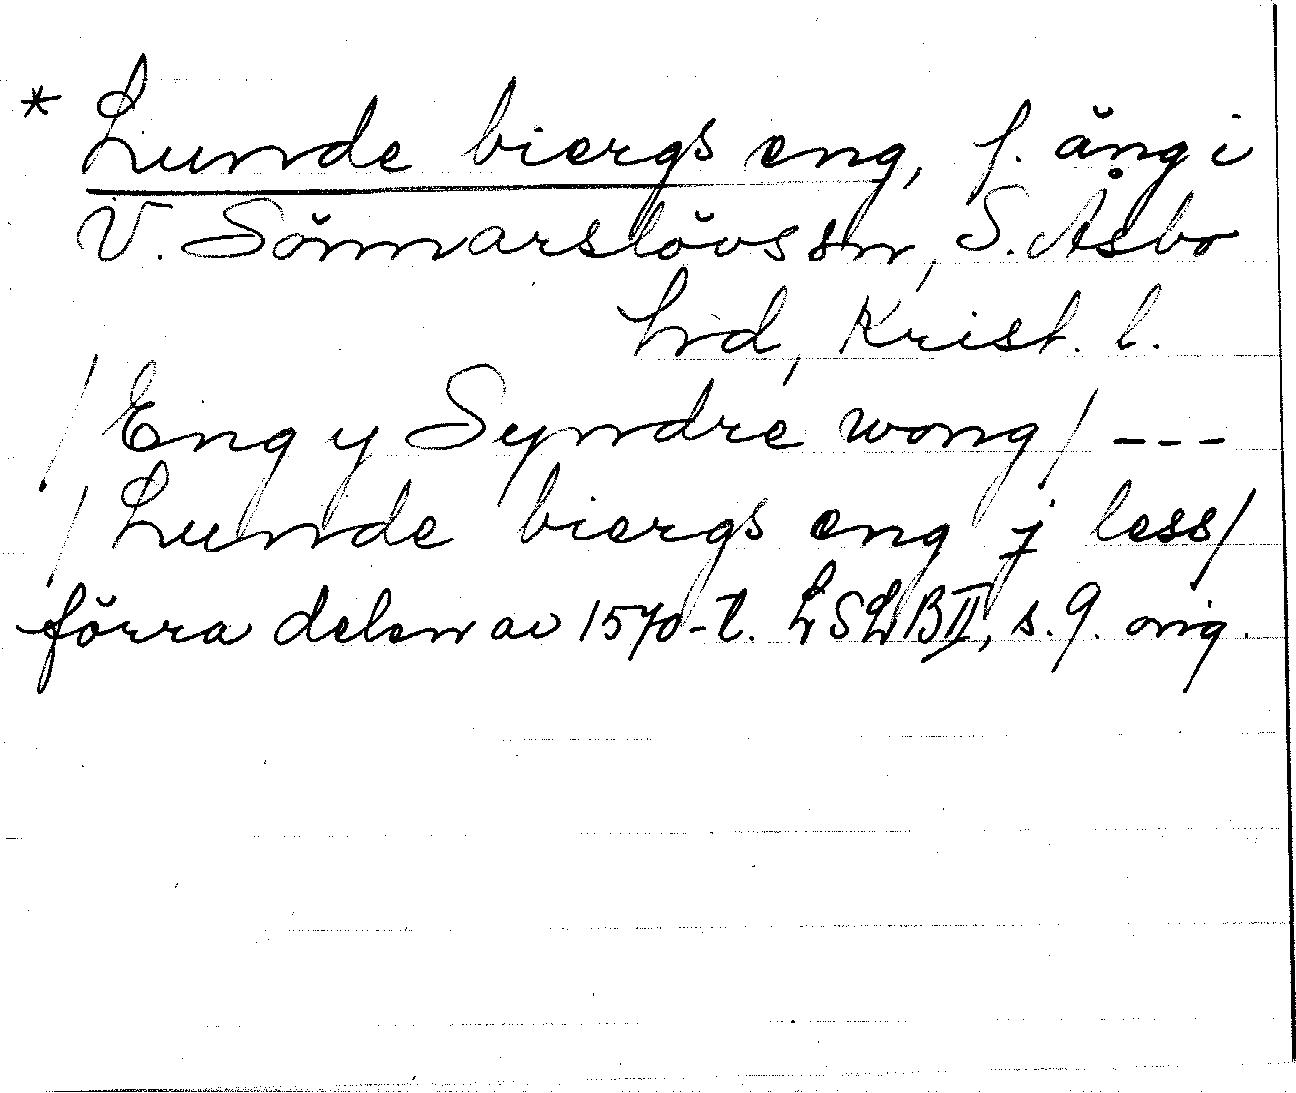 * Lunde biergs eng, f. äng i
V. Sönnarslövs sn, S. Åsbo
hd, Krist. l.
/Eng y Syndre wong/ ---
/Lunde biergs eng j less/
förra delen av 1570-t. LSLB II, s. 9. orig.